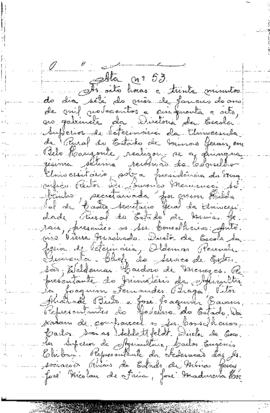 Ata nº 53
As oito horas e trinta minutos
do dia sete do mês de janeiro do ano
de mil novecentos e cinquenta e oito,
no gabinete da Diretoria da Escola
Superior de Veterinária da Universida-
de Rural do Estado de Minas Gerais, em
Belo Horizonte, realizou-se a quinqua-
gésima reunião do Conselho
Universitário, sob a presidência do
Reitor
secretariada por
da Universi-
dade Rural do Estado de Minas Ge-
rais, presentes os srs. Conselheiros: Antô-
nio Vieira Machado, Diretor da Escola
de Veterinária,
Pimenta, Chefe do Serviço de Exten-
são, Geldemar Cardoso de Menezes, Re-
presentante do
Joaquim Fernandes Braga,
e José Joaquim
Representantes do Governo do Estado. Dei-
xaram de comparecer os srs. Conselheiros:
Carlos Schlottfeldt, Diretor da Esco-
la Superior de Agricultura, Carlos Eugênio
Representante da Federação das As-
sociações Rurais do Estado de Minas Gerais,
José Nicolau de Faria, José Madureira